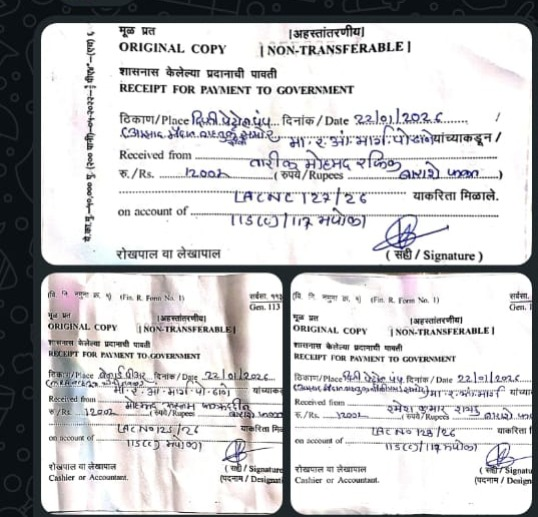 मूळ प्रत [अहस्तांतरणीय]
ORIGINAL COPY [NON-TRANSFERABLE]
शासनास केलेल्या प्रदानाची पावती
RECEIPT FOR PAYMENT TO GOVERNMENT
ठिकाण/Place दिनांक / Date 22/01/2026
मा. र. आ. मार्ग यांच्याकडून /
Received from तारीक मोहमद रफिक
रु./Rs. 1200/- (रुपये/Rupees बाराशे फक्त)
LAC NC 127/26 याकरिता मिळाले.
on account of 115(c)/117 मपोका
रोखपाल वा लेखापाल (सही / Signature)
(Fin. R. Form No. 1) सर्वसा. ११३
Gen. 113
मूळ प्रत [अहस्तांतरणीय]
ORIGINAL COPY [NON-TRANSFERABLE]
शासनास केलेल्या प्रदानाची पावती
RECEIPT FOR PAYMENT TO GOVERNMENT
ठिकाण/Place दिनांक / Date 22/01/2026
मा. र. आ. मार्ग यांच्याकडू
Received from
रु./Rs. 1200/- (रुपये/Rupees बाराशे फक्त
LAC NO 125/26 याकरिता मि
on account of 115(c) मपोका
रोखपाल वा लेखापाल (सही / Signature
Cashier or Accountant. (पदनाम / Designat
(Fin. R. Form No. 1) सर्वसा.
Gen. 1
मूळ प्रत [अहस्तांतरणीय]
ORIGINAL COPY [NON-TRANSFERABLE]
शासनास केलेल्या प्रदानाची पावती
RECEIPT FOR PAYMENT TO GOVERNMENT
ठिकाण/Place दिनांक / Date 22/01/2026
मा. र. आ. मार्ग यांच्या
Received from रमेश कुमार
रु./Rs. 1200/- (रुपये/Rupees बाराशे फक्त
LAC NO 128/26 याकरिता
on account of 115(c)/117 मपोका
रोखपाल वा लेखापाल (सही / Signatu
Cashier or Accountant. (पदनाम / Design